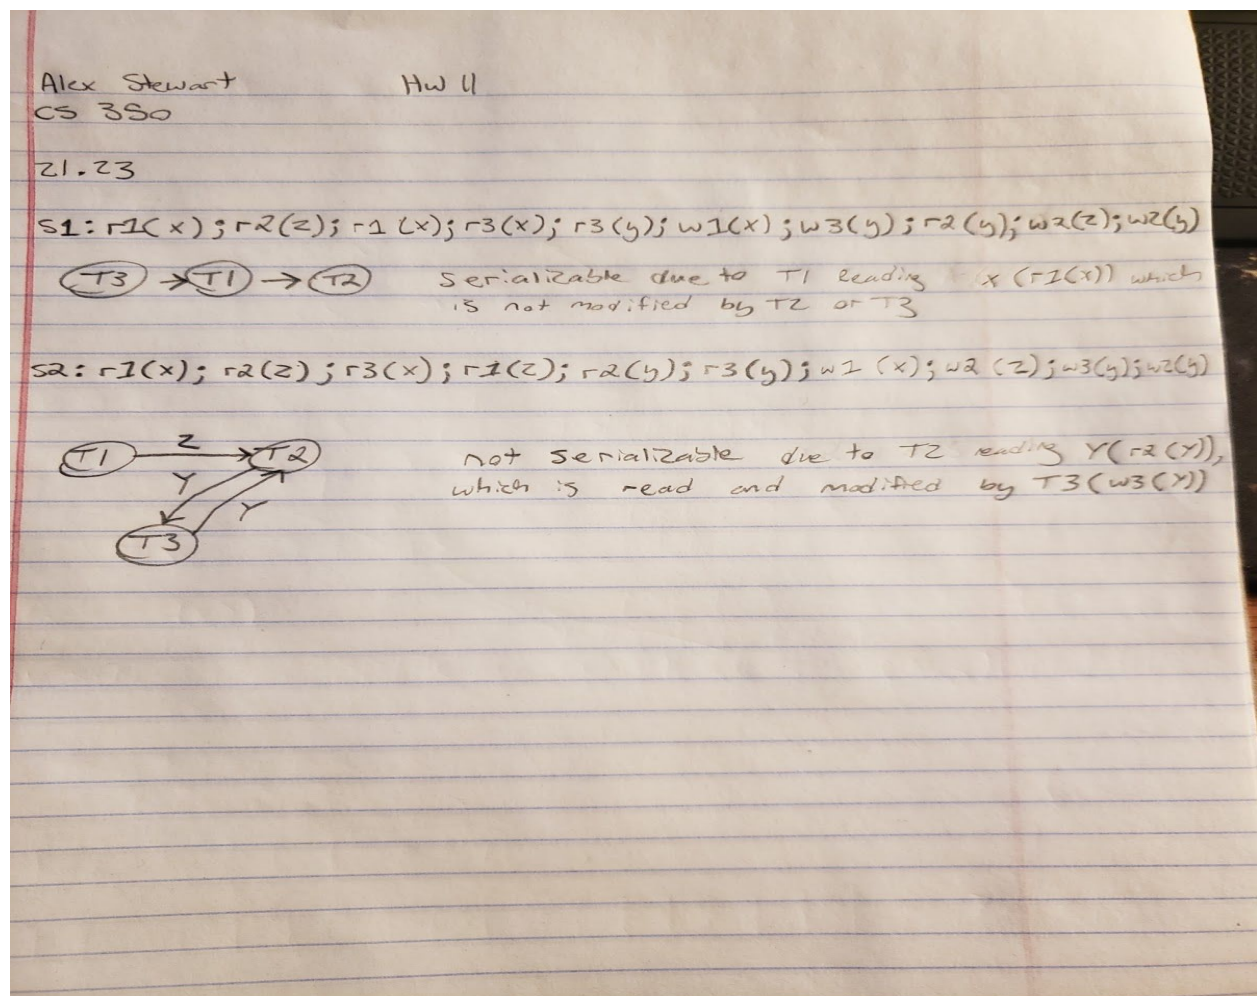 Alex Stewart HW 11
CS 350
21.23
S1: r1(x); r2(z); r1(x); r3(x); r3(y); w1(x); w3(y); r2(y); w2(z); w2(y)
T3 → T1 → T2 Serializable due to T1 Reading x (r1(x)) which
is not modified by T2 or T3
S2: r1(x); r2(z); r3(x); r1(z); r2(y); r3(y); w1(x); w2(z); w3(y); w2(y)
T1 Z T2 not serializable due to T2 reading Y(r2(Y)),
Y which is read and modified by T3(w3(Y))
Y
T3